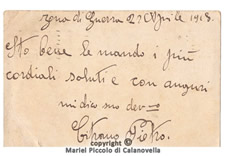 Zona di Guerra 22 Aprile 1918.
Sto bene le mando i più
cordiali saluti e con auguri
mi dico suo dev-mo
Pietro.
copyright ©
Mariel Piccolo di Calanovella